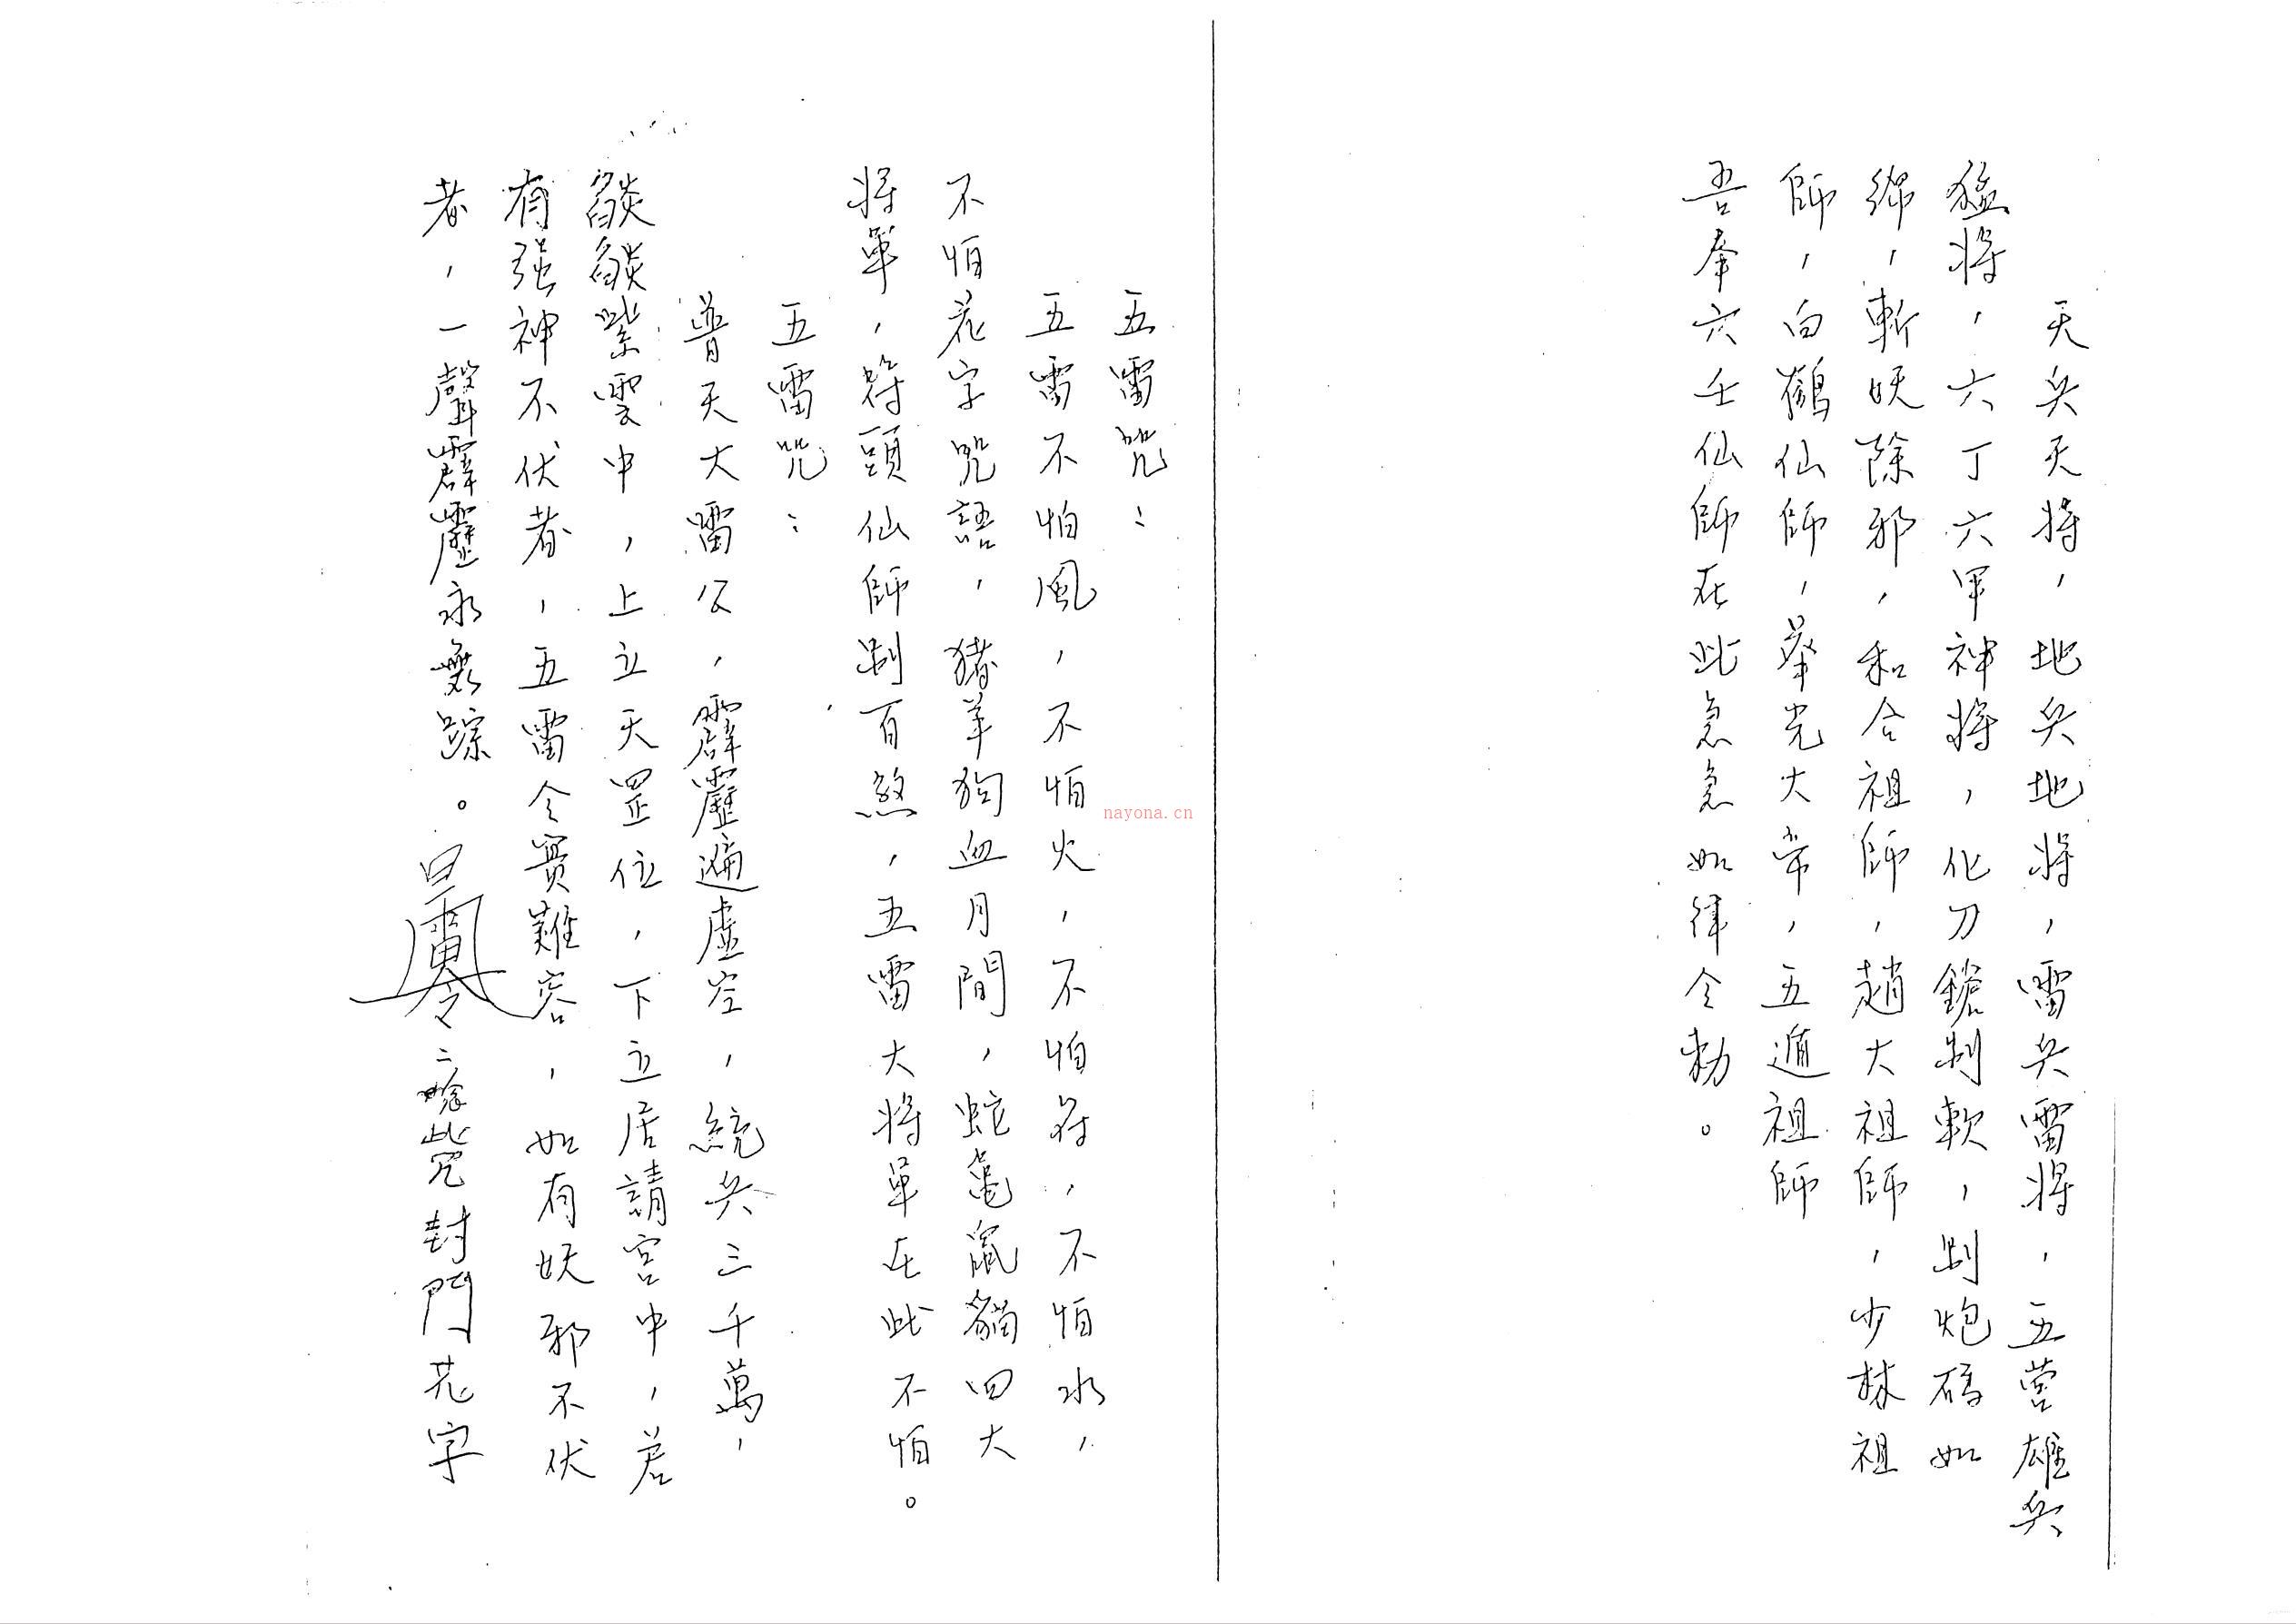 天兵天将,地兵地將,雷兵雷將,五營雄兵
猛將,六丁六甲神將,化刀鎗制軟,制炮碼如
綿,斬妖除邪,和合祖師,趙大祖師,少林祖
師,白鶴仙師,舉光大帝,五遁祖師
吾奉六壬仙師在此急急如律令勅。
五雷咒:
五雷不怕風,不怕火,不怕符,不怕水,
不怕花字咒語,豬羊狗血月間,蛇龜鼠貓四大
將軍,符頭仙師制百煞,五雷大將軍在此不怕。
五雷咒:
普天大雷公,霹靂遍虛空,統兵三千萬,
燄燄紫雲中,上立天罡位,下立居請宮中,若
有强神不伏者,五雷令實難容,如有妖邪不伏
者,一聲霹靂永無踪。二唸此咒封門花字
nayona.cn